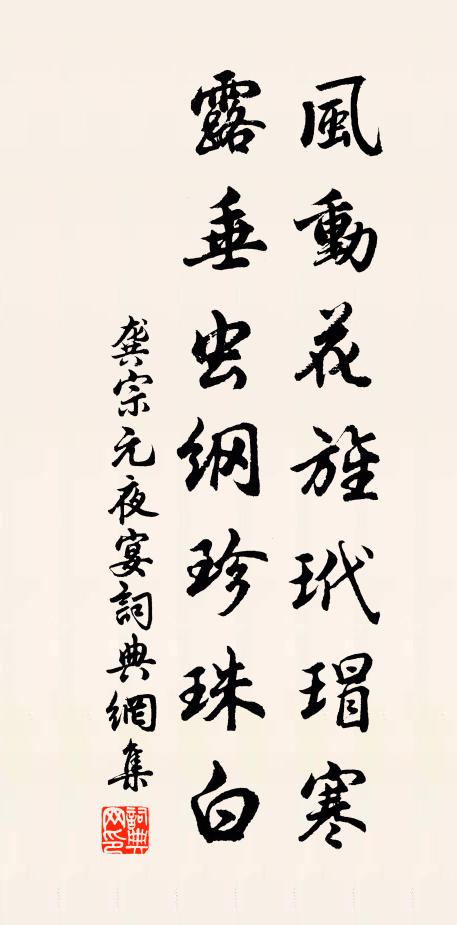 風動花旌玳瑁寒
露垂虫綱珍珠白
龔宗元夜宴詞典網集
詞典網印